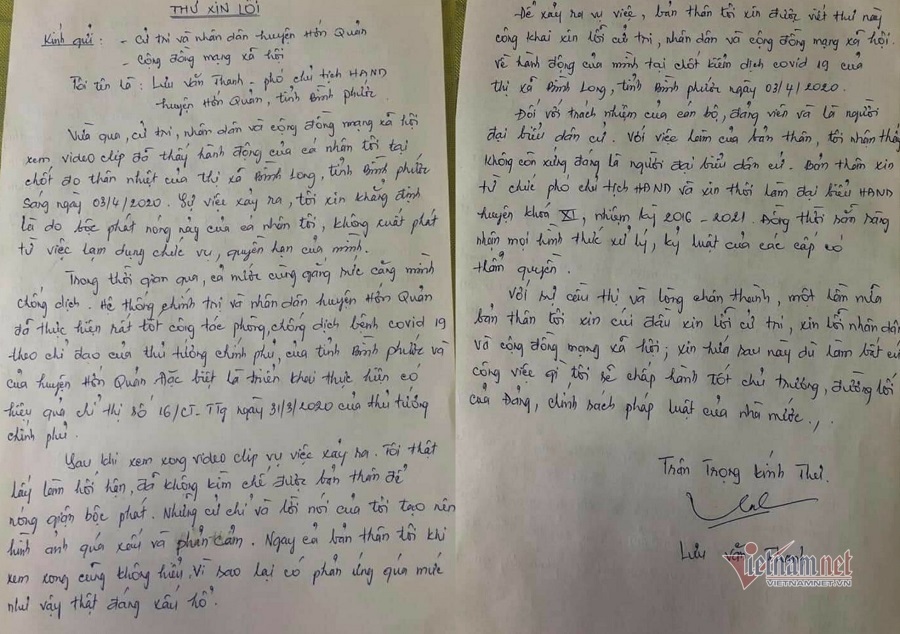 THƯ XIN LỖI
Kính gửi: - Cử tri và nhân dân huyện Hớn Quản
- Cộng đồng mạng xã hội
Tôi tên là: Lưu Văn Thanh - phó chủ tịch HĐND
huyện Hớn Quản, tỉnh Bình phước.
Vừa qua, cử tri, nhân dân và cộng đồng mạng xã hội
xem video clip đã thấy hành động của cá nhân tôi tại
chốt đo thân nhiệt của thị xã Bình Long, tỉnh Bình phước
sáng ngày 03/4/2020. Sự việc xảy ra, tôi xin khẳng định
là do bộc phát nóng nảy của cá nhân tôi, không xuất phát
từ việc lạm dụng chức vụ, quyền hạn của mình.
Trong thời gian qua, cả nước cùng gắng sức căng mình
chống dịch. Hệ thống chính trị và nhân dân huyện Hớn Quản
đã thực hiện rất tốt công tác phòng, chống dịch bệnh covid 19
theo chỉ đạo của thủ tướng chính phủ, của tỉnh Bình phước và
của huyện Hớn Quản đặc biệt là triển khai thực hiện có
hiệu quả chỉ thị số 16/CT-TTg ngày 31/3/2020 của thủ tướng
chính phủ.
Sau khi xem xong video clip vụ việc xảy ra. Tôi thật
lấy làm hối hận, đã không kìm chế được bản thân để
nóng giận bộc phát. Những cử chỉ và lời nói của tôi tạo nên
hình ảnh quá xấu và phản cảm. Ngay cả bản thân tôi khi
xem xong cũng không hiểu, vì sao lại có phản ứng quá mức
như vậy thật đáng xấu hổ.
Để xảy ra vụ việc, bản thân tôi xin được viết thư này
công khai xin lỗi cử tri, nhân dân và cộng đồng mạng xã hội.
về hành động của mình tại chốt kiểm dịch covid 19 của
thị xã Bình Long, tỉnh Bình phước ngày 03/4/2020.
Đối với trách nhiệm của cán bộ, đảng viên và là người
đại biểu dân cử. Với việc làm của bản thân, tôi nhận thấy
không còn xứng đáng là người đại biểu dân cử. Bản thân xin
từ chức phó chủ tịch HĐND và xin thôi làm đại biểu HĐND
huyện khóa XI, nhiệm kỳ 2016 - 2021. Đồng thời sẵn sàng
nhận mọi hình thức xử lý, kỷ luật của các cấp có
thẩm quyền.
Với sự cầu thị và lòng chân thành, một lần nữa
bản thân tôi xin cúi đầu xin lỗi cử tri, xin lỗi nhân dân
và cộng đồng mạng xã hội; xin hứa sau này dù làm bất cứ
công việc gì tôi sẽ chấp hành tốt chủ trương, đường lối
của Đảng, chính sách pháp luật của nhà nước./.
Trân Trọng kính Thư.
Lưu Văn Thanh
vietnamnet
VIETNAMNET.VN